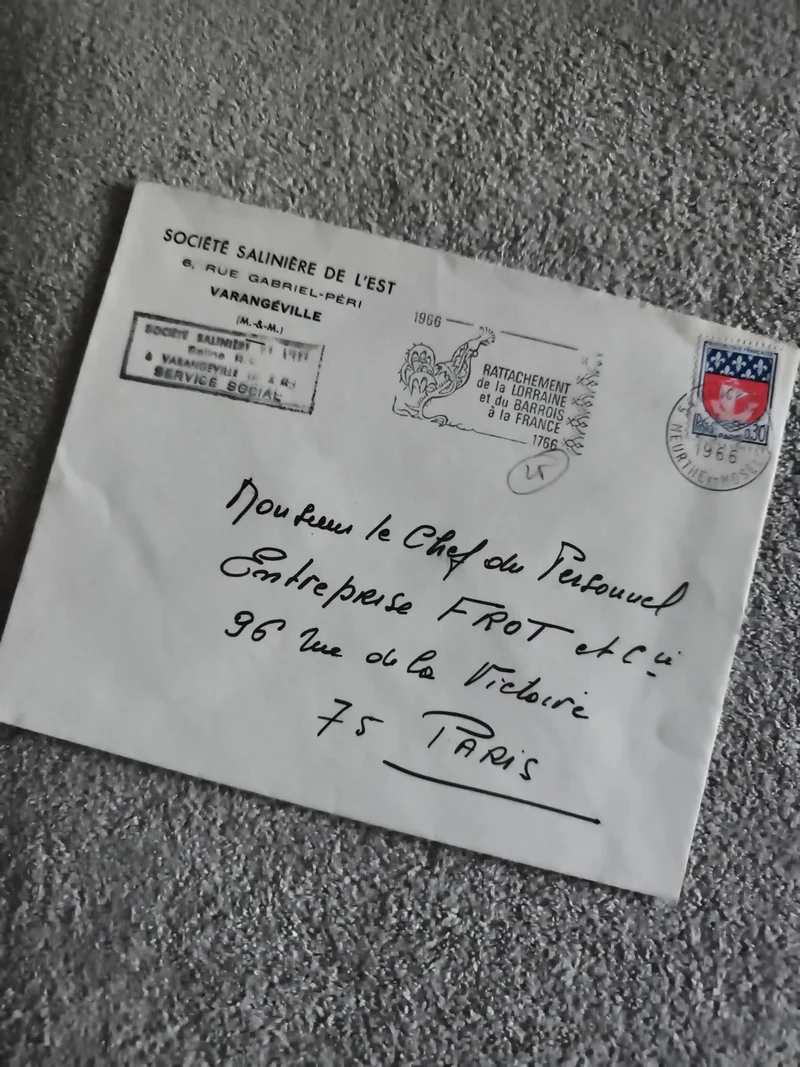 SOCIÉTÉ SALINIÈRE DE L'EST
6, RUE GABRIEL-PÉRI
VARANGÉVILLE
(M.-&-M.)
SOCIÉTÉ SALINIÈRE
Saline
à VARANGÉVILLE
SERVICE SOCIAL
1966
RATTACHEMENT
de la LORRAINE
et du BARROIS
à la FRANCE
1766
0,30
1966
MEURTHE ET MOSELLE
Monsieur le Chef du Personnel
Entreprise FROT et Cie
96 Rue de la Victoire
75 PARIS